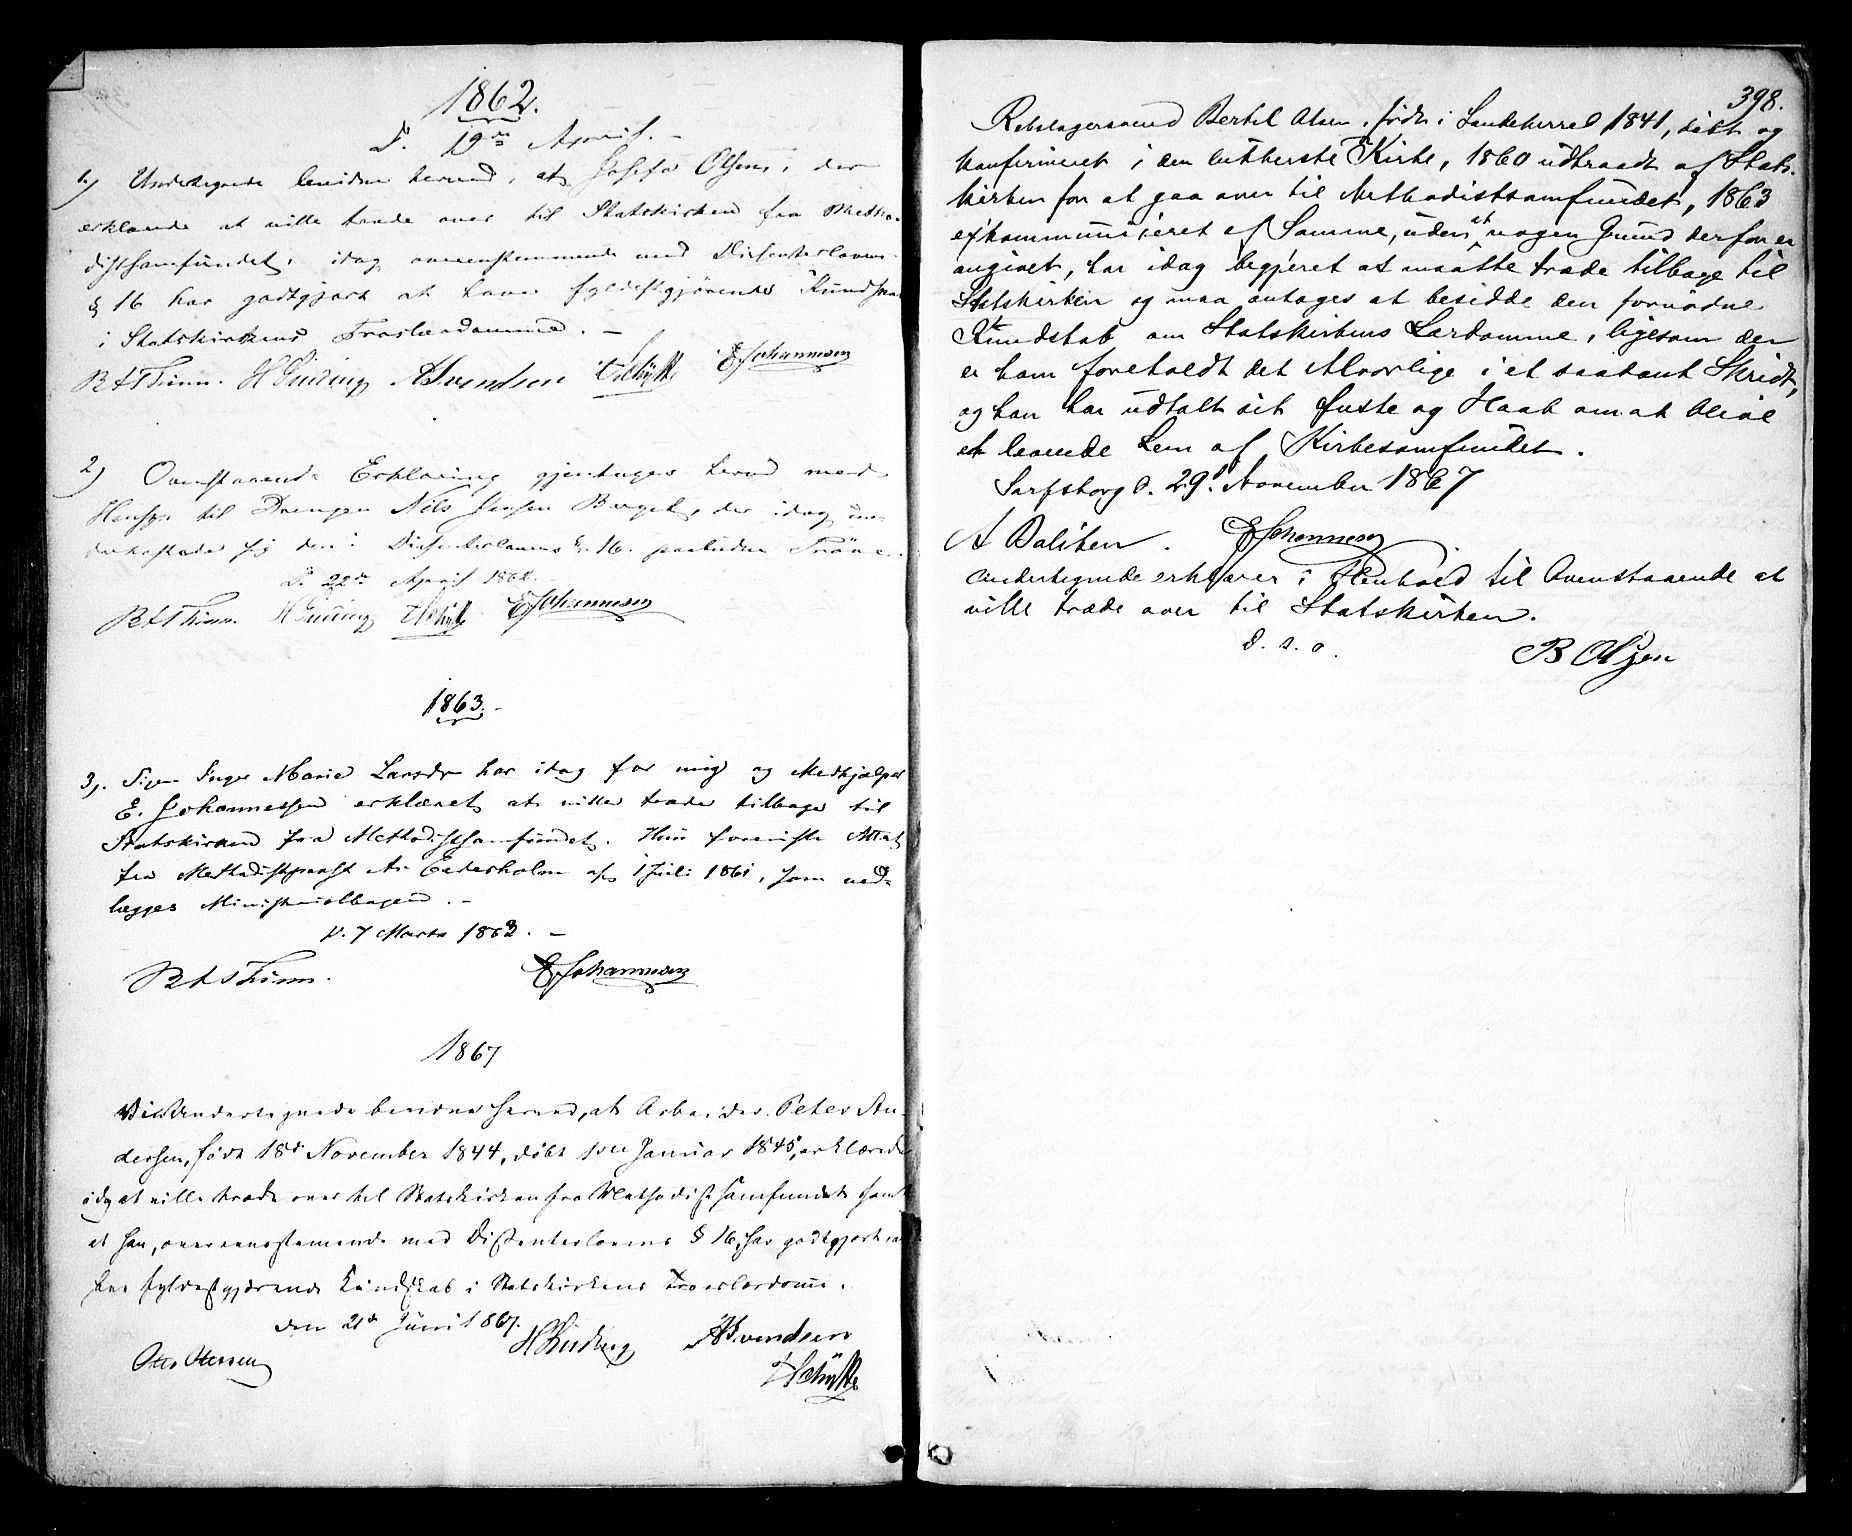 1862.
D. 19de April. -
1.) Undertegnede bevidne herved, at Josefa Olsen, der
erklærede at ville træde over til Statskirken fra Metho-
distsamfundet, idag overensstemmende med Dissenterlovens
§ 16 har godtgjort at have fyldestgjørende Kundskab
i Statskirkens Troeslærdomme. -
R A S Thinn. H Gliding A Svendsen Schütte E Johannesen
2) Ovenstaaende Erklæring gjentages herved med
Hensyn til Drengen Nils Jensen Berget, der idag un-
derkastede sig den i Dissenterlovens § 16. paabudne Prøve.
D. 22de April 1862.
R A S Thinn. H Gliding Schütte E Johannesen
1863. -
3). Pigen Inger Marie Larsdr har idag for mig og Medhjælper
E. Johannessen erklæret at ville træde tilbage til
Statskirken fra Methodistsamfundet. Hun foreviste Attest
fra Methodistpræst A. Cederholm af 1 Juli 1861, som ved-
lægges Ministerialbogen. -
D. 7 Marts 1863. -
R A S Thinn. E Johannesen
1867
Vi Undertegnede bevidne herved, at Arbeider Peter An-
dersen, født 18de November 1844, døbt 1ste Januar 1845, erklærede
idag at ville træde over til Statskirken fra Methodistsamfundet samt
at han, overensstemmende med Dissenterlovens § 16, har godtgjort at
have fyldestgjørende Kundskab i Statskirkens Troeslærdomme.
den 21de Juni 1867.
H Gliding A Svendsen
Otto Hersen
Schütte
398.
Rebslagersvend Bertil Olsen, født i Sandeherred 1841, døbt og
konfirmeret i den lutherske Kirke, 1860 udtraadt af Stats-
kirken for at gaa over til Methodistsamfundet, 1863
exkommuniceret af Samme, uden at nogen Grund derfor er
angivet, har idag begjæret at maatte træde tilbage til
Statskirken og maa antages at besidde den fornødne
Kundskab om Statskirkens Lærdomme, ligesom der
er ham foreholdt det Alvorlige i et saadant Skridt,
og han har udtalt sit Ønske og Haab om at blive
et levende Lem af Kirkesamfundet.
Sarpsborg d. 29. November 1867
A Baliken. E Johannesen
Undertegnede erklærer i Henhold til Ovenstaaende at
ville træde over til Statskirken.
d. s. o.
B Olsen